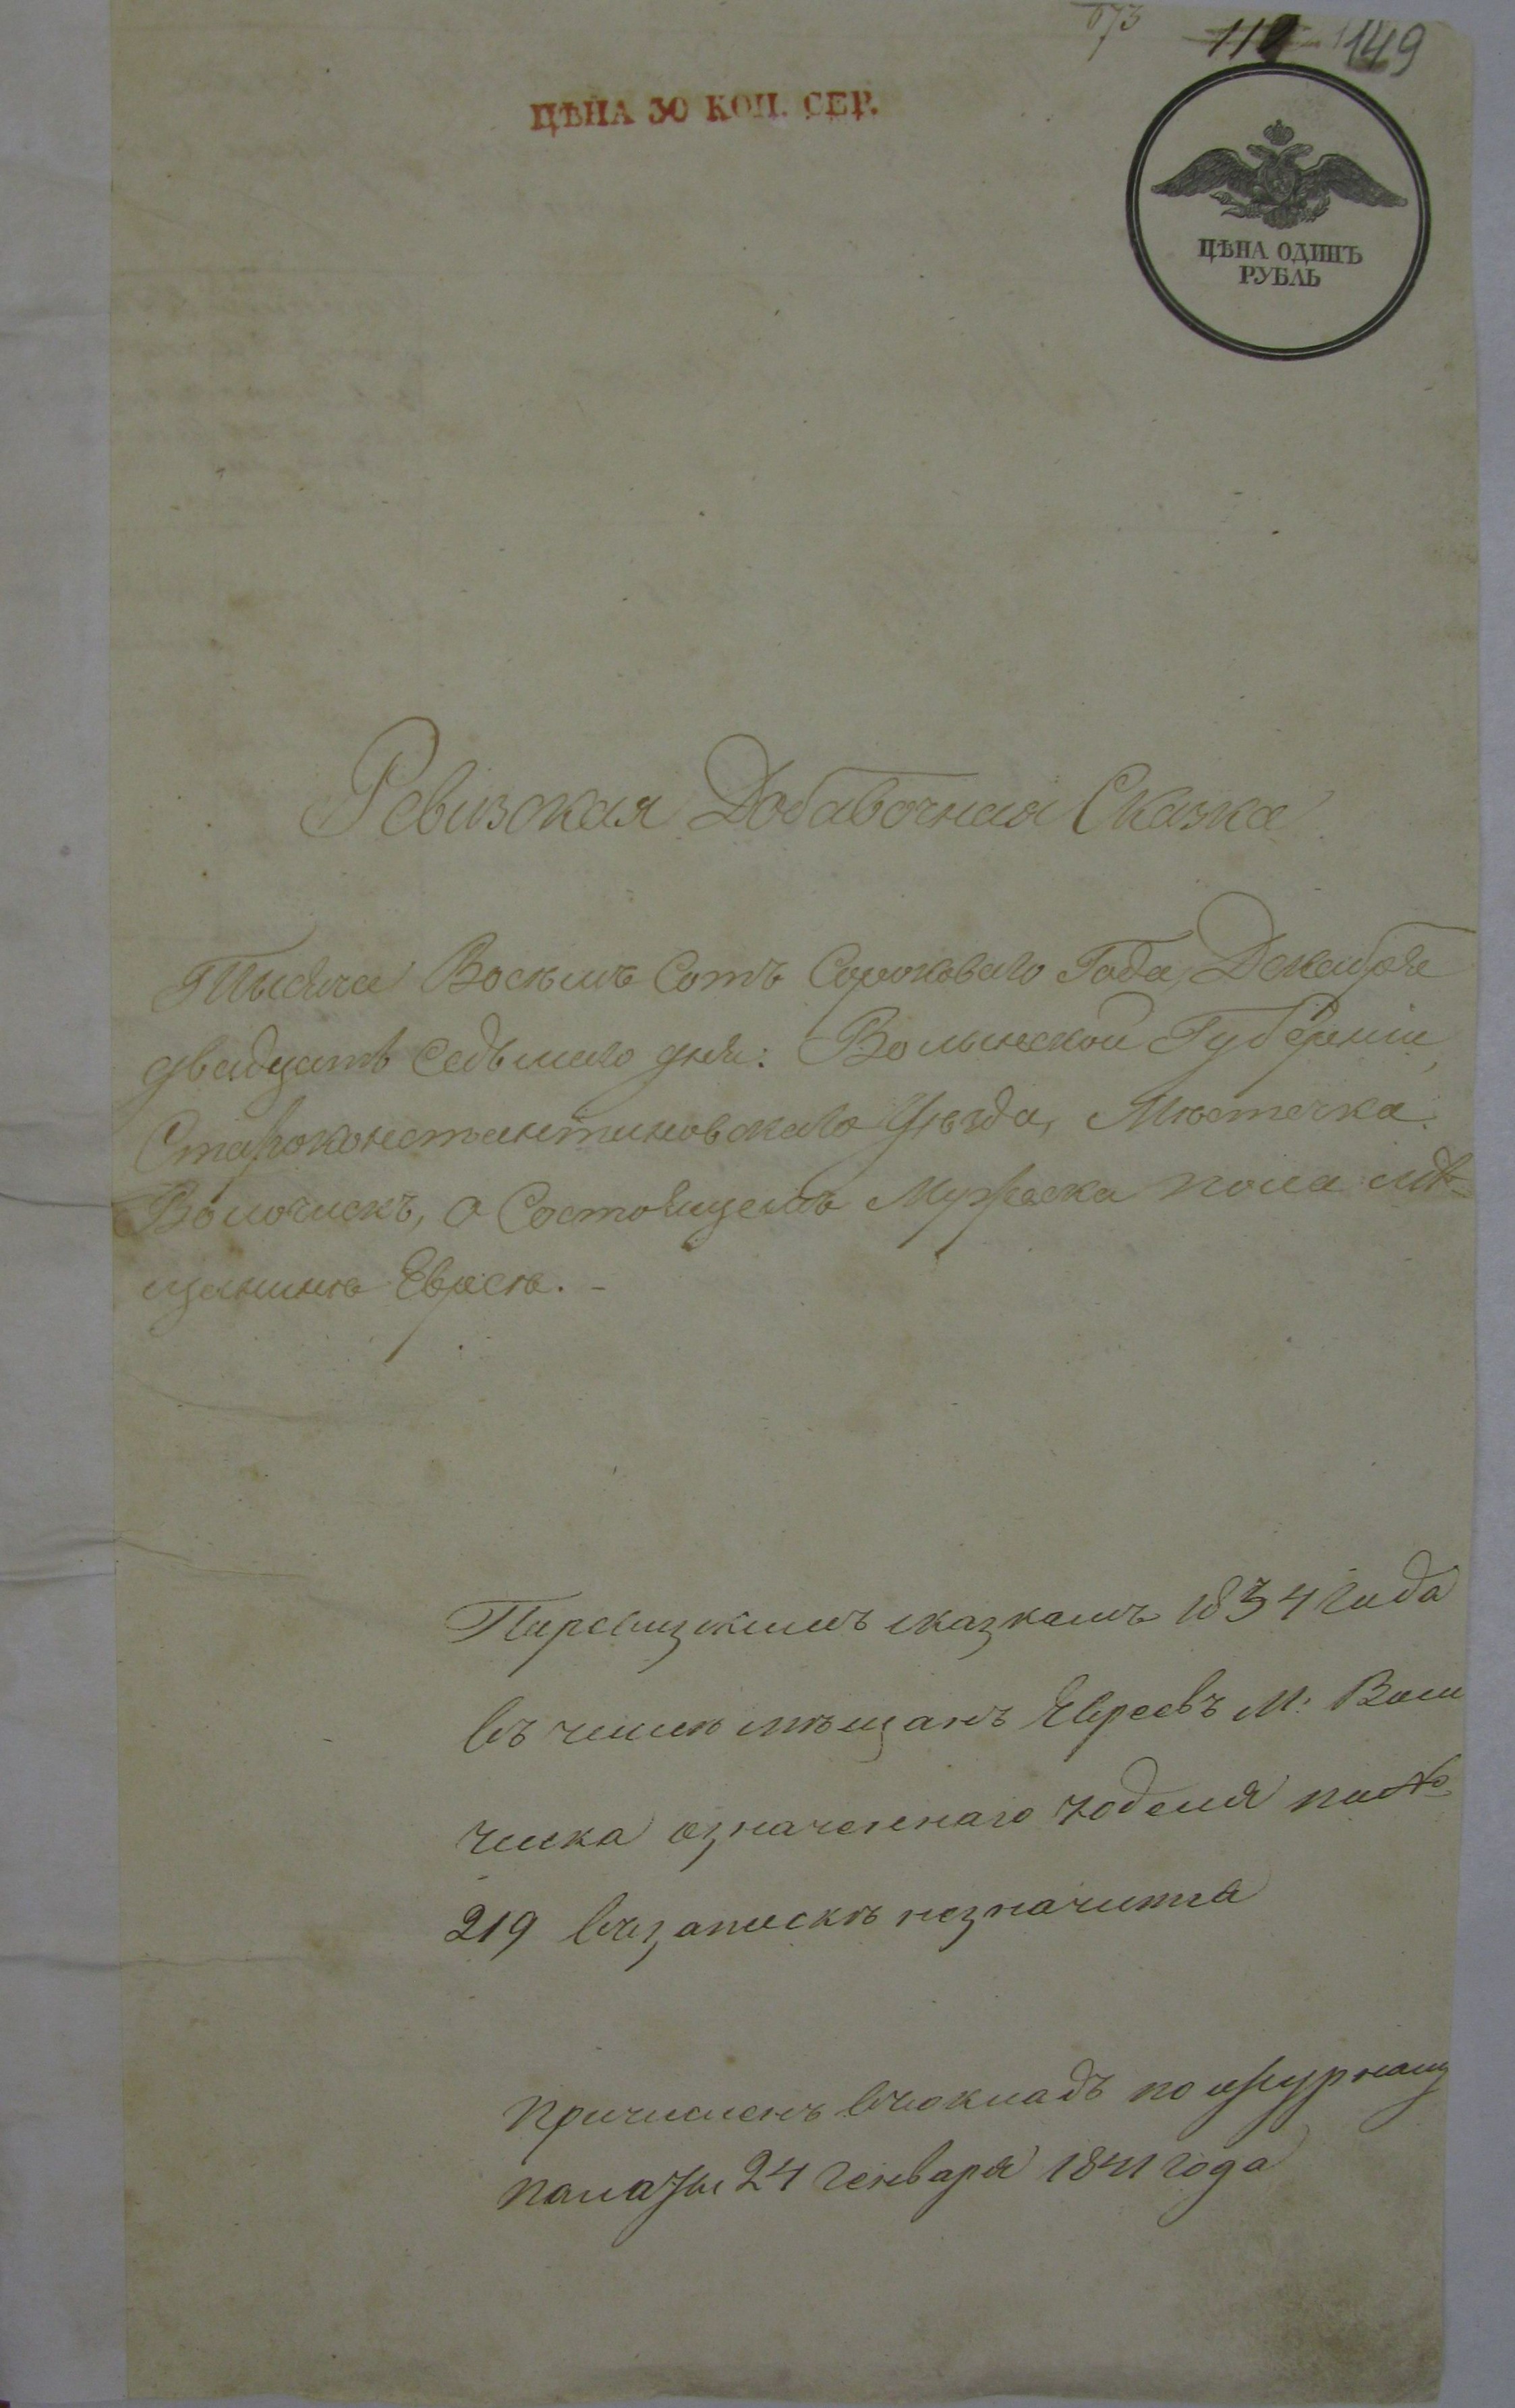 673 110 149
ЦѢНА 30 КОП. СЕР.
ЦѢНА ОДИНЪ
РУБЛЬ
Ревизская Добавочная Сказка
Тысяча Восемь Сотъ Сороковаго Года, Декабря
двадцать седьмаго дня: Волынской Губерніи,
Староконстантиновскаго Уѣзда, Мѣстечка
Волочискъ, о Состоящемъ Мужеска пола мѣ-
щанинѣ Евреѣ. -
По ревизскимъ сказкамъ 1834 года
въ числѣ мѣщанъ Евреевъ М. Воло
чиска означеннаго подъ №
219 въ запискѣ незначится
причисленъ въ окладъ по журналу
палаты 24 Генваря 1841 года